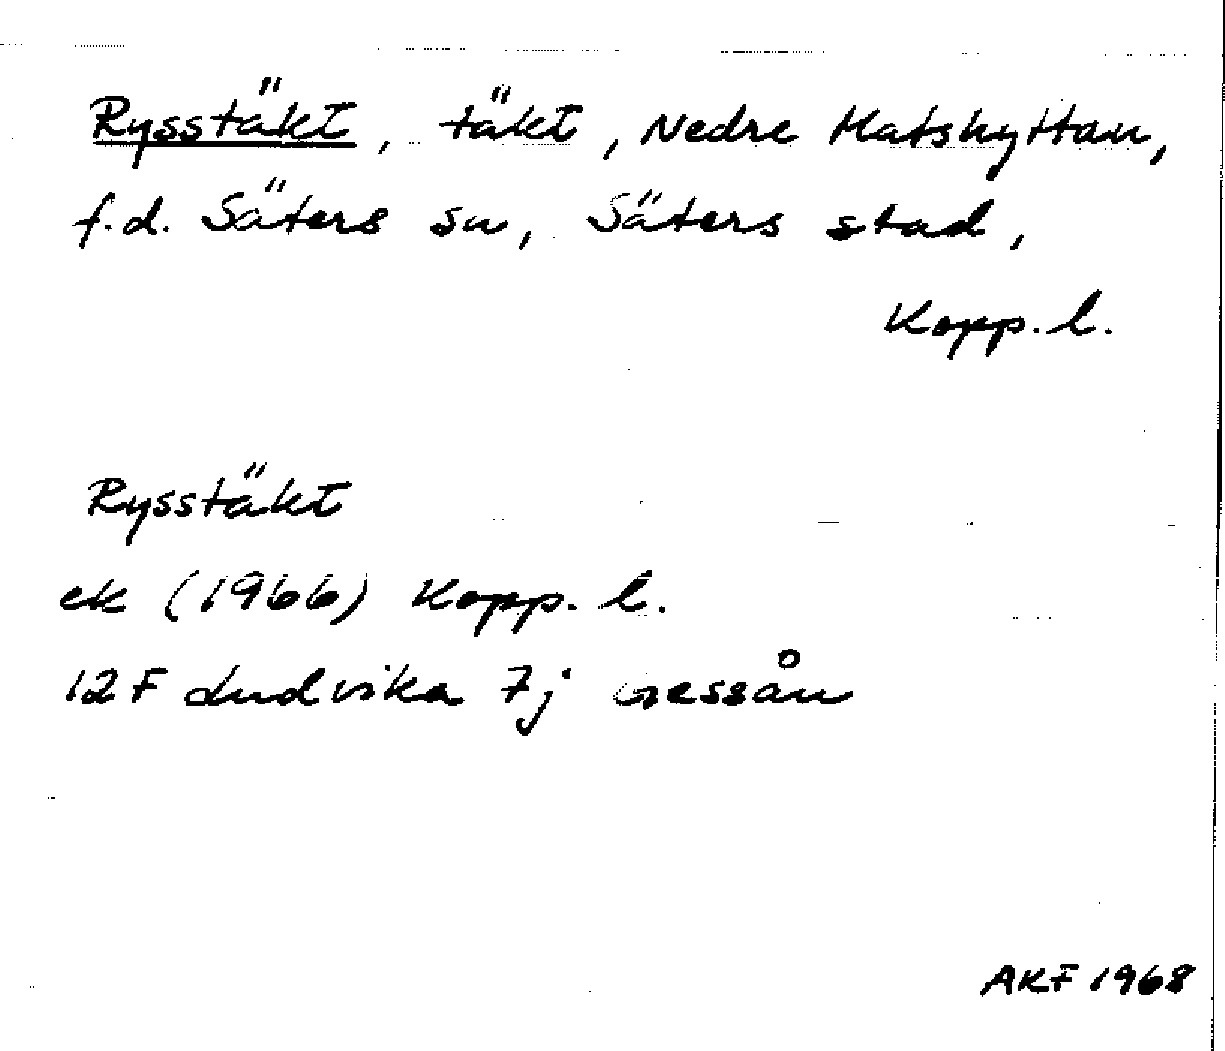 Rysstäkt, täkt, Nedre Matshyttan,
f.d. Säters sn, Säters stad,
Kopp. l.
Rysstäkt
ek (1966) Kopp. l.
12F Ludvika 7j Gessån
AKF 1968